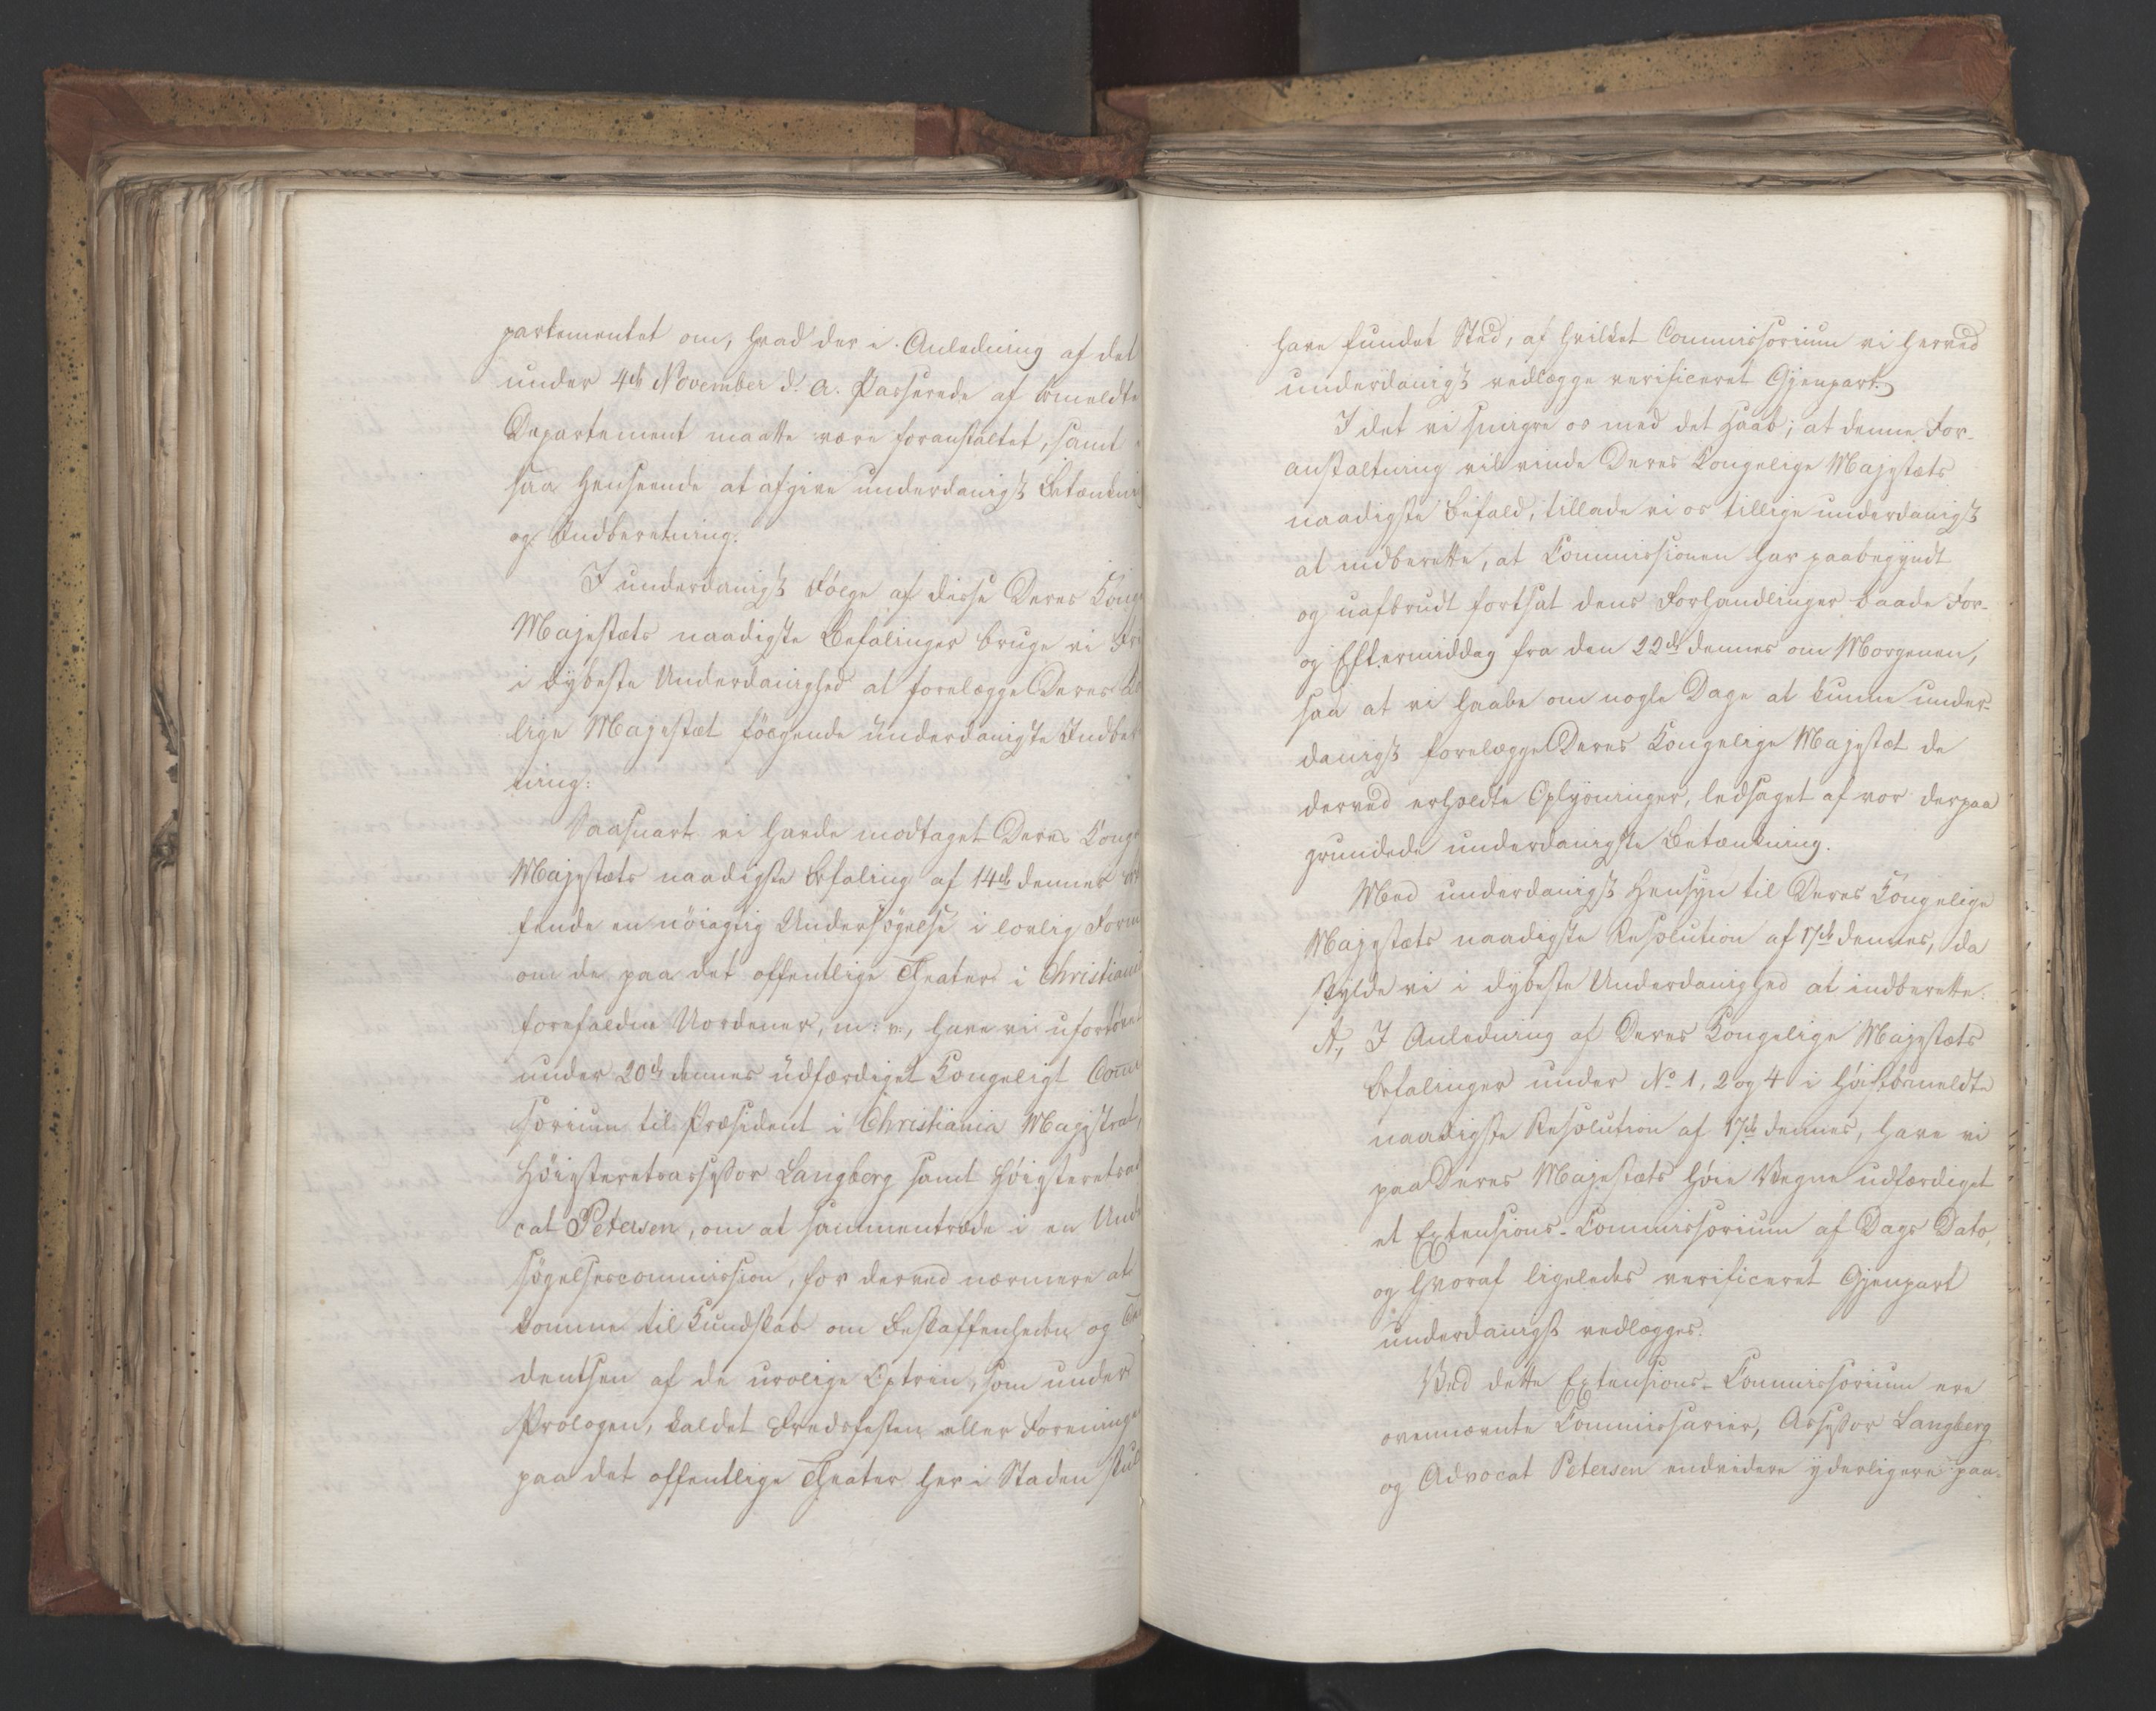 partementet om, hvad der i Anledning af det
under 4de November d. A. Passerede af bemeldte
Departement maatte være foranstaltet, samt i
saa Henseende at afgive underdanigst Betænkni
og Indberetning.
I underdanigst Følge af disse Deres Kong
Majestæts naadigste Befalinger bruge vi Fri
i dybeste Underdanighed at forelægge Deres
lige Majestæt følgende underdanigste Indber
ning:
Saasnart vi havde modtaget Deres Konge
Majestæts naadigste Befaling af 14de dennes
fende en nöiagtig Undersögelse i lovlig Form
om de paa det offentlige Theater i Christiani
forefaldne Uordener, m: v:, have vi ufortøvet
under 20de dennes udfærdiget Kongeligt Comm
sorium til Præsident i Christiania Magistrat,
Höiesteretsassessor Langberg samt Höiesteretsad
cat Petersen, om at sammentræde i en Und
søgelsescommission, for derved nærmere at
komme til Kundskab om Beskaffenheden og Te
dentsen af de urolige Optrin, som under
Prologen, kaldet Fredsfesten eller Foreninge
paa det offentlige Theater her i Staden skul
have fundet Sted, af hvilket Commissorium vi herved
underdanigst vedlægge verificeret Gjenpart.
I det vi smigre os med det Haab, at denne For-
anstaltning vil vinde Deres Kongelige Majestæts
naadigste Bifald, tillade vi os tillige underdanigst
at indberette, at Commissionen har paabegyndt
og uafbrudt fortsat dens Forhandlinger baade For-
og Eftermiddag fra den 22de dennes om Morgenen,
saa at vi haabe om nogle Dage at kunne under-
danigst forelægge Deres Kongelige Majestæt de
derved erholdte Oplysninger, ledsaget af vor derpaa
grundede underdanigste Betænkning.
Med underdanigst Hensyn til Deres Kongelige
Majestæts naadigste Resolution af 17de dennes, da
skylde vi i dybeste Underdanighed at indberette:
A., I Anledning af Deres Kongelige Majestæts
Befalinger under No 1, 2 og 4 i höistbemeldte
naadigste Resolution af 17de dennes, have vi
paa Deres Majestæts höie Vegne udfærdiget
et Extensions-Commissorium af Dags Dato,
og hvoraf ligeledes verificeret Gjenpart
underdanigst vedlægges.
Ved dette Extensions-Commissorium ere
ovennævnte Commissarier, Assessor Langberg
og Advocat Petersen endvidere yderligere paa-